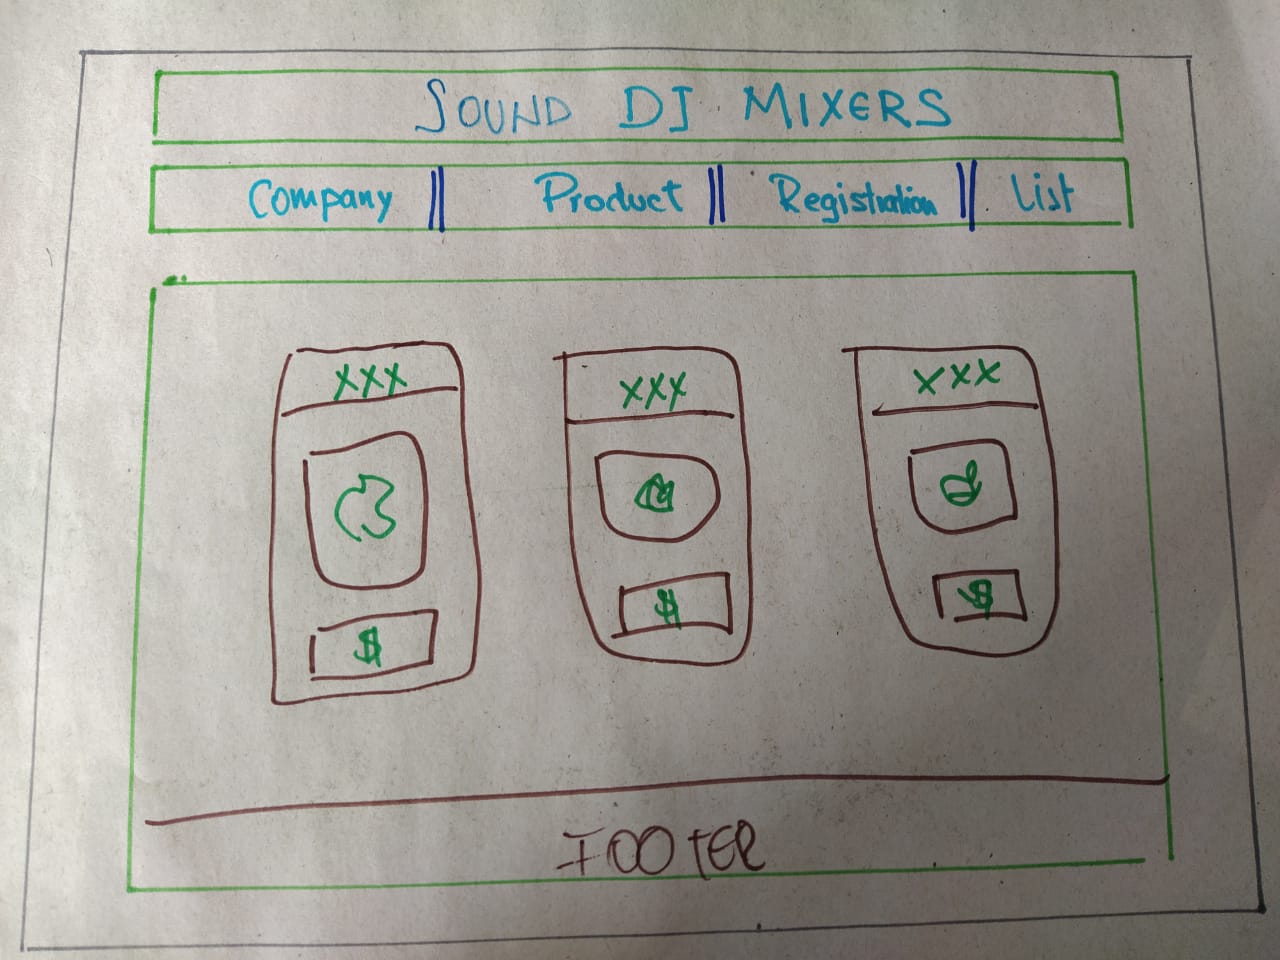 SOUND DJ MIXERS
Company || Product || Registration || List
XXX XXX XXX
$ $ $
FOOTER